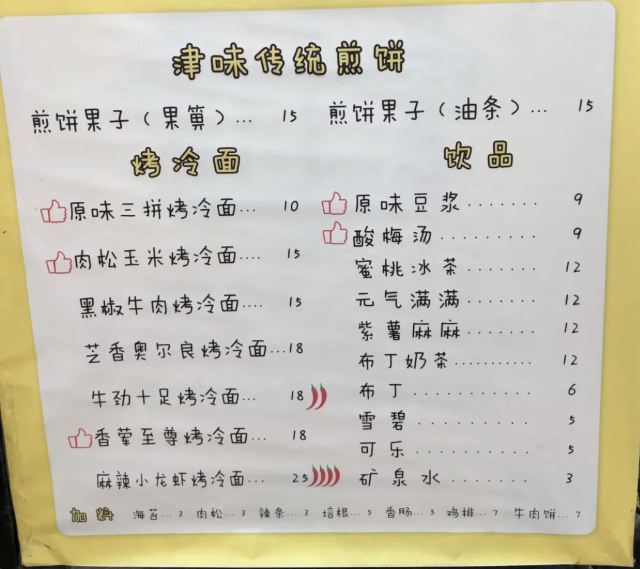 津味传统煎饼
煎饼果子（果箅）... 15
煎饼果子（油条）... 15
烤冷面
原味三拼烤冷面... 10
肉松玉米烤冷面.... 15
黑椒牛肉烤冷面... 15
芝香奥尔良烤冷面...18
牛劲十足烤冷面... 18
香荤至尊烤冷面... 18
麻辣小龙虾烤冷面... 25
饮品
原味豆浆....... 9
酸梅汤......... 9
蜜桃冰茶....... 12
元气满满....... 12
紫薯麻麻....... 12
布丁奶茶........... 12
布丁........... 6
雪碧........... 5
可乐........... 5
矿泉水........ 3
加料 海苔... 3 肉松... 3 辣条... 3 培根... 5 香肠... 5 鸡排... 7 牛肉饼... 7